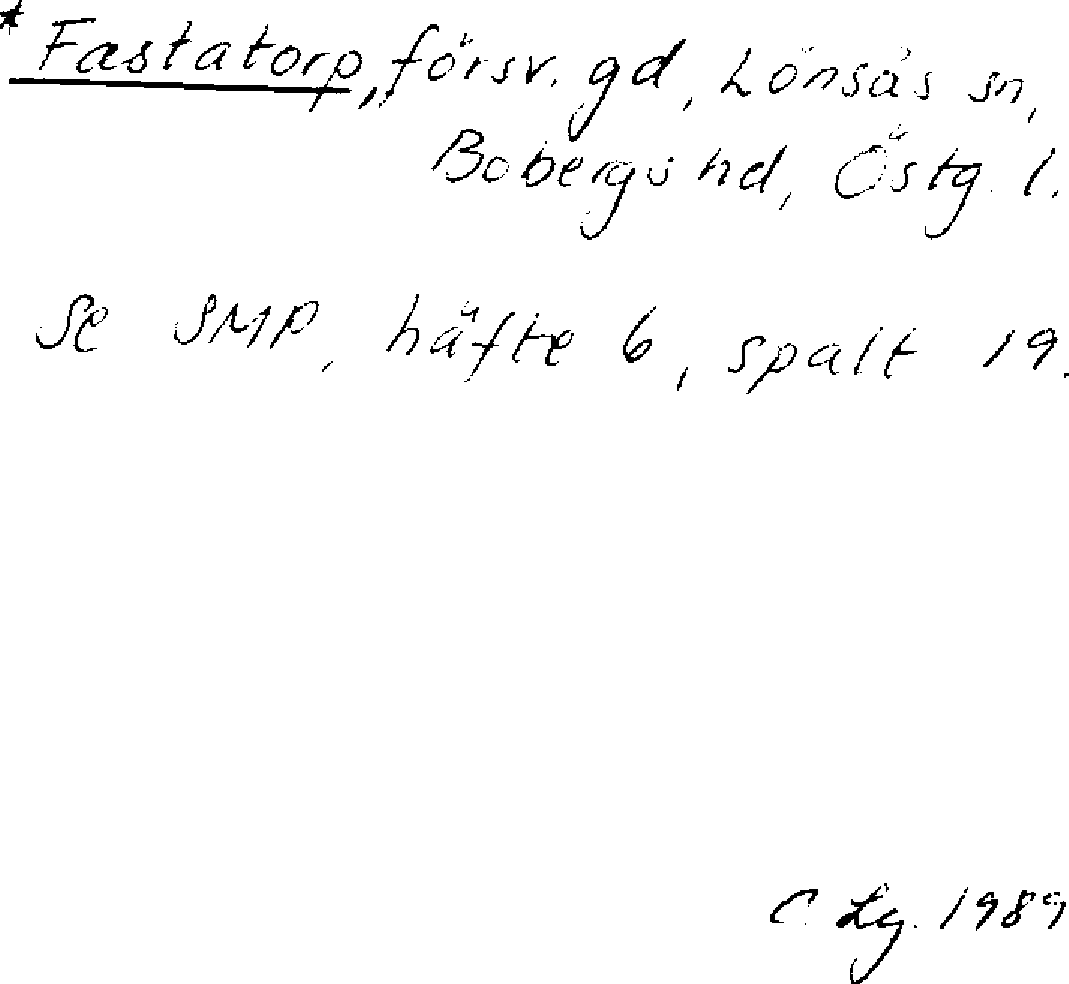 * Fastatorp, försv. gd, Lönsås sn,
Bobergs hd, Östg. l.
Se SMP, häfte 6, spalt 19.
C. Lg. 1989